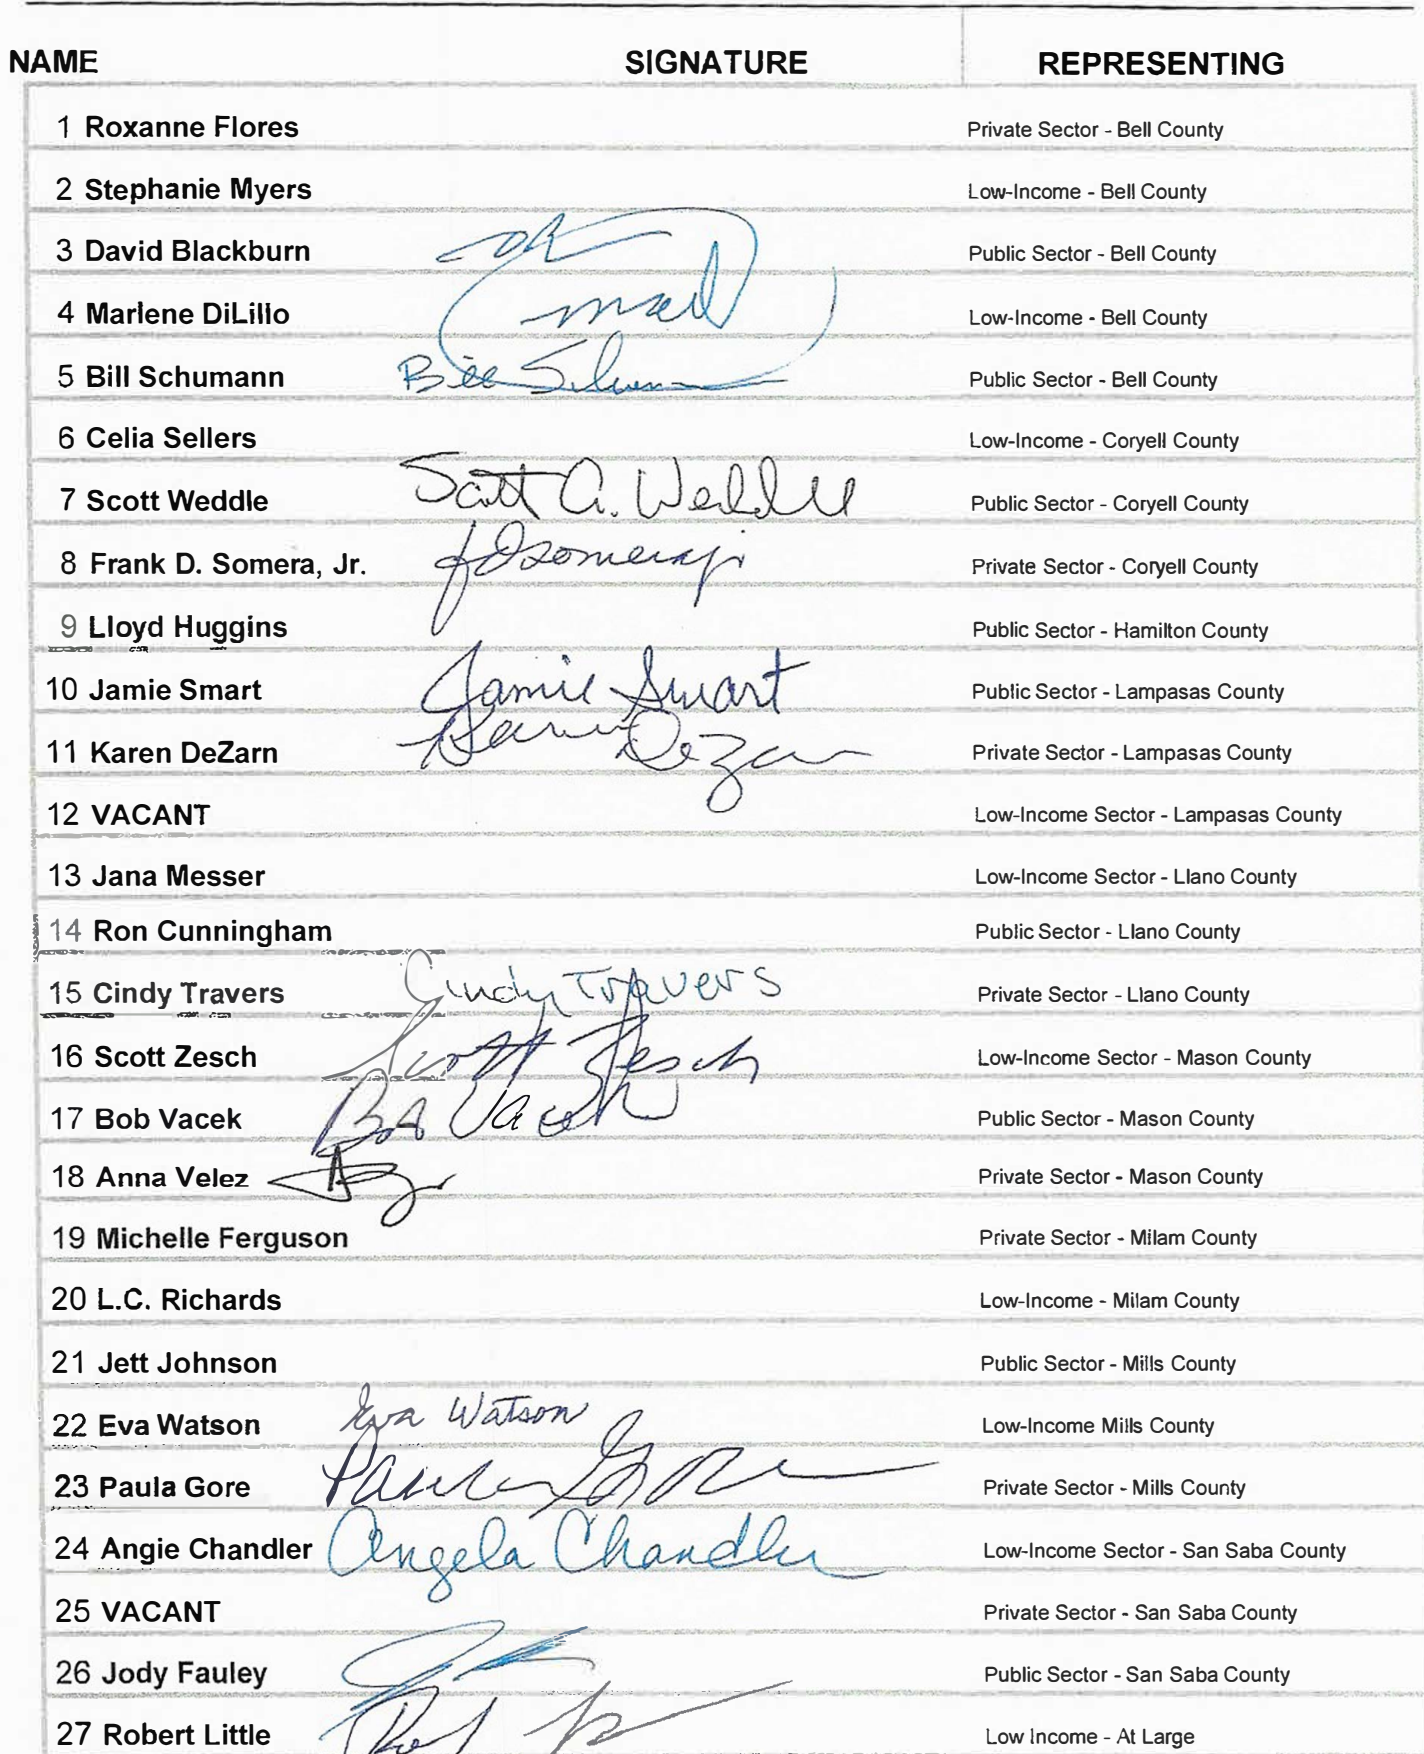 NAME SIGNATURE REPRESENTING
1 Roxanne Flores Private Sector - Bell County
2 Stephanie Myers Low-Income - Bell County
3 David Blackburn Public Sector - Bell County
4 Marlene DiLillo Low-Income - Bell County
5 Bill Schumann Bill Schumann Public Sector - Bell County
6 Celia Sellers Low-Income - Coryell County
7 Scott Weddle Scott A. Weddle Public Sector - Coryell County
8 Frank D. Somera, Jr. fDsomerajr Private Sector - Coryell County
9 Lloyd Huggins Public Sector - Hamilton County
10 Jamie Smart Jamie Smart Public Sector - Lampasas County
11 Karen DeZarn Karen DeZarn Private Sector - Lampasas County
12 VACANT Low-Income Sector - Lampasas County
13 Jana Messer Low-Income Sector - Llano County
14 Ron Cunningham Public Sector - Llano County
15 Cindy Travers Cindy Travers Private Sector - Llano County
16 Scott Zesch Scott Zesch Low-Income Sector - Mason County
17 Bob Vacek Bob Vacek Public Sector - Mason County
18 Anna Velez Private Sector - Mason County
19 Michelle Ferguson Private Sector - Milam County
20 L.C. Richards Low-Income - Milam County
21 Jett Johnson Public Sector - Mills County
22 Eva Watson Eva Watson Low-Income Mills County
23 Paula Gore Paula Gore Private Sector - Mills County
24 Angie Chandler Angela Chandler Low-Income Sector - San Saba County
25 VACANT Private Sector - San Saba County
26 Jody Fauley Public Sector - San Saba County
27 Robert Little Low Income - At Large